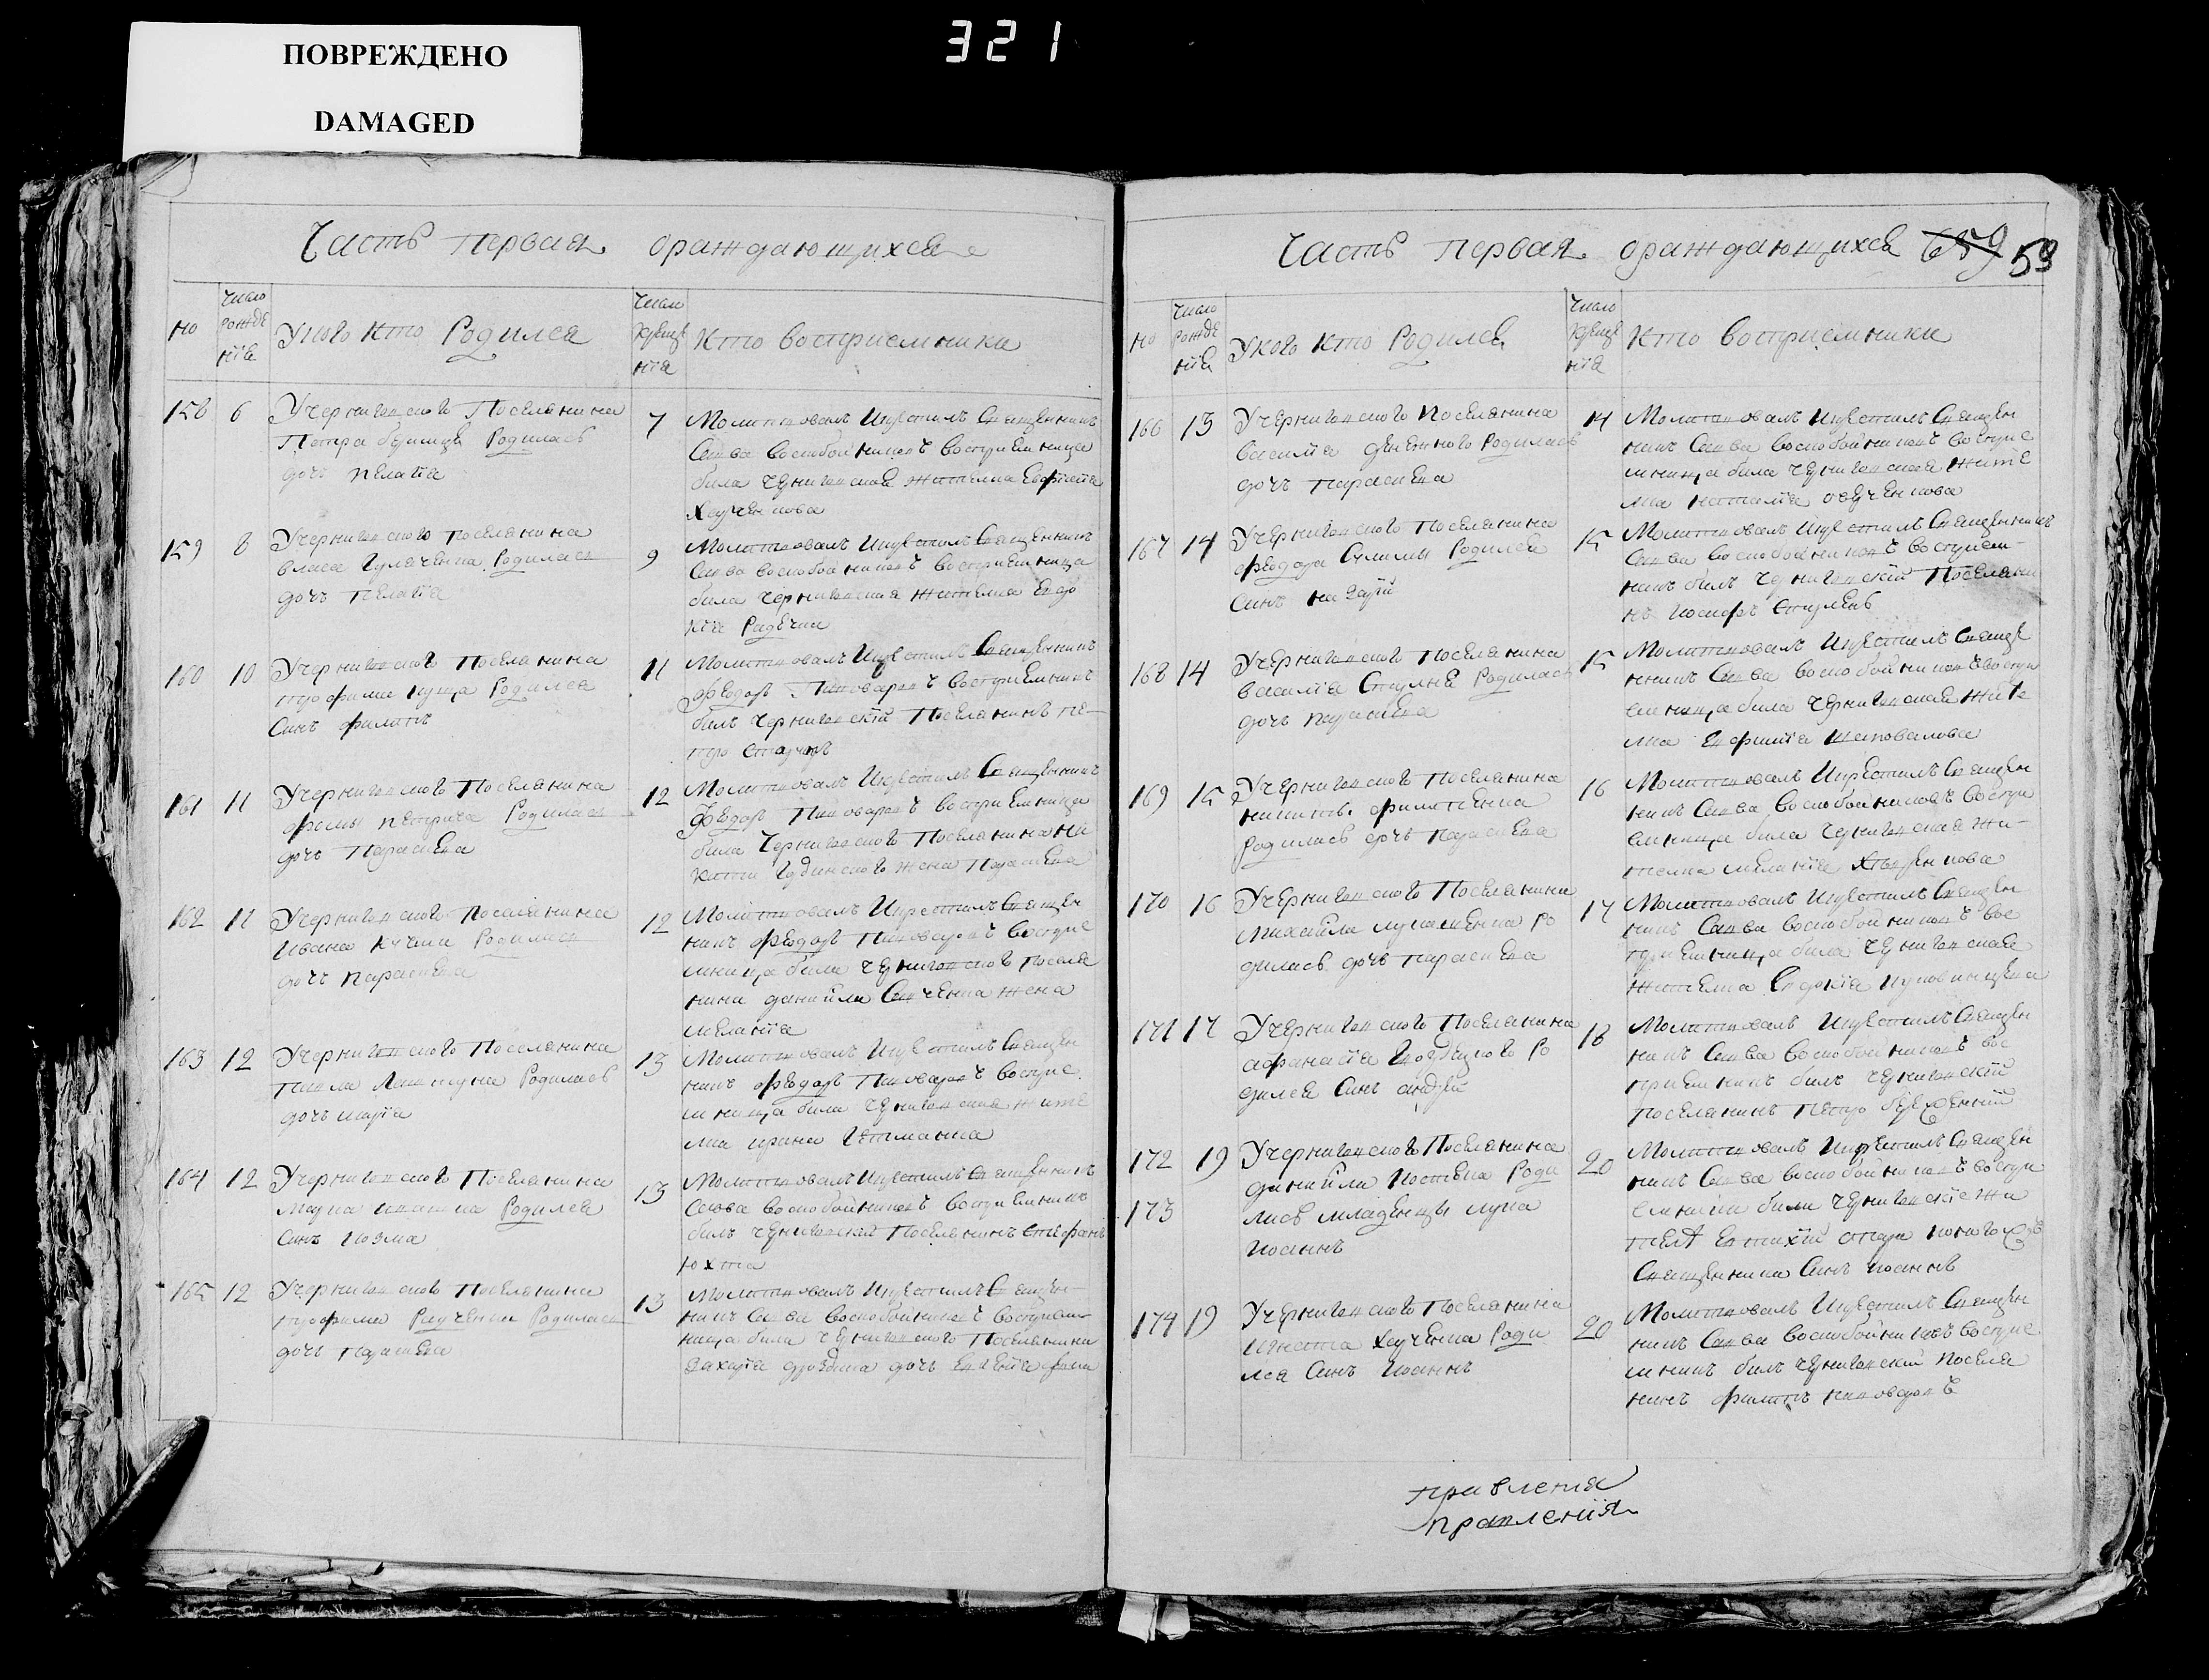 321
ПОВРЕЖДЕНО
DAMAGED
Часть первая ораждающихся
но
число рожде нїя
Укого кто Родился
число креще нїя
Кто восприемники
158 6
Учерниговского Поселянина
Петра Родилась
дочь пелагїя
7
Молитвовалъ Икрестилъ Священникъ
Савва воскобойниковъ восприемница
била черниговская жителка Евфимїя
159 8
Учерниговского поселянина
власа Родилась
дочь пелагїя
9
Молитвовалъ Икрестилъ Священникъ
Савва воскобойниковъ восприемница
била черниговская жителка Евдо
кїя
160 10
Учерниговского поселянина
трофима куца Родился
Синъ филиппъ
11
Молитвовалъ Икрестилъ Священникъ
Федоръ Пивоваровъ восприемникъ
билъ черниговскїй Поселянинъ пе-
тро
161 11
Учерниговского Поселянина
фомы петрича Родилась
дочь Параскева
12
Молитвовалъ Икрестилъ Священникъ
Федоръ Пивоваровъ восприемница
била Черниговского Поселянина ни
киты жена Параскева
162 11
Учерниговского Поселянина
Ивана кучми Родилась
дочь параскева
12
Молитвовалъ Икрестилъ Священ
никъ федоръ Пивоваровъ воспрїе
мница била черниговского поселя
нина данїила Савченка жена
меланїя
163 12
Учерниговского Поселянина
Родилась
дочь марїя
13
Молитвовалъ Икрестилъ Священ
никъ федоръ Пивоваровъ воспрїе
мница била черниговская жите
лка ирина Гетманка
164 12
Учерниговского Поселянина
марка Родился
Синъ козма
13
Молитвовалъ Икрестилъ Священникъ
Савва воскобойниковъ восприемникъ
билъ черниговский Поселянинъ стефанъ
юхта
165 12
Учерниговского Поселянина
трофима Родилась
дочь параскева
13
Молитвовалъ Икрестилъ Священ-
никъ Савва воскобойниковъ восприем-
ница била черниговского Поселянина
Захарїя дочь
Часть первая ораждающихся 659 59
но
число рожде нїя
Укого кто Родился
число креще нїя
Кто восприемники
166 13
Учерниговского Поселянина
василїя Родилась
дочь параскева
14
Молитвовалъ Икрестилъ Священ
никъ Савва воскобойниковъ восприе
мница била черниговская жите
лка наталїя
167 14
Учерниговского Поселянина
федора Сулимы Родился
Синъ назарїй
15
Молитвовалъ Икрестилъ Священникъ
Савва воскобойниковъ восприем-
никъ билъ черниговскїй Поселяни
нъ Иосифъ
168 14
Учерниговского Поселянина
василїя Родилась
дочь параскева
15
Молитвовалъ Икрестилъ Священ
никъ Савва воскобойниковъ воспри
емница била черниговская жите
лка Евфимїя Шаповалова
169 15
Учерниговского Поселянина
никиты филипенка
Родилась дочь параскева
16
Молитвовалъ Икрестилъ Священ
никъ Савва воскобойниковъ воспри
емница била черниговская жи-
телка меланїя
170 16
Учерниговского Поселянина
Михайла лукашенка ро
дилась дочь параскева
17
Молитвовалъ Икрестилъ Священ
никъ Савва воскобойниковъ вос
приемница била черниговская
жителка Евдокїя
171 17
Учерниговского Поселянина
афанасїя Ро
дился Синъ андрей
18
Молитвовалъ Икрестилъ Священ
никъ Савва воскобойниковъ вос
приемникъ билъ черниговскїй
поселянинъ петро
172 19
173
Учерниговского Поселянина
данїила Костенка Роди
лись младенцы лука
иоаннъ
20
Молитвовалъ Икрестилъ Священ
никъ Савва воскобойниковъ воспри
емники били черниговскїе жи
теля
Священника Синъ иоаннъ
174 19
Учерниговского Поселянина
игната Роди
лся Синъ Иоаннъ
20
Молитвовалъ Икрестилъ Священ
никъ Савва воскобойниковъ восприе
мникъ билъ черниговский поселя
нинъ филиппъ пивоваровъ
правленїя
правленїя